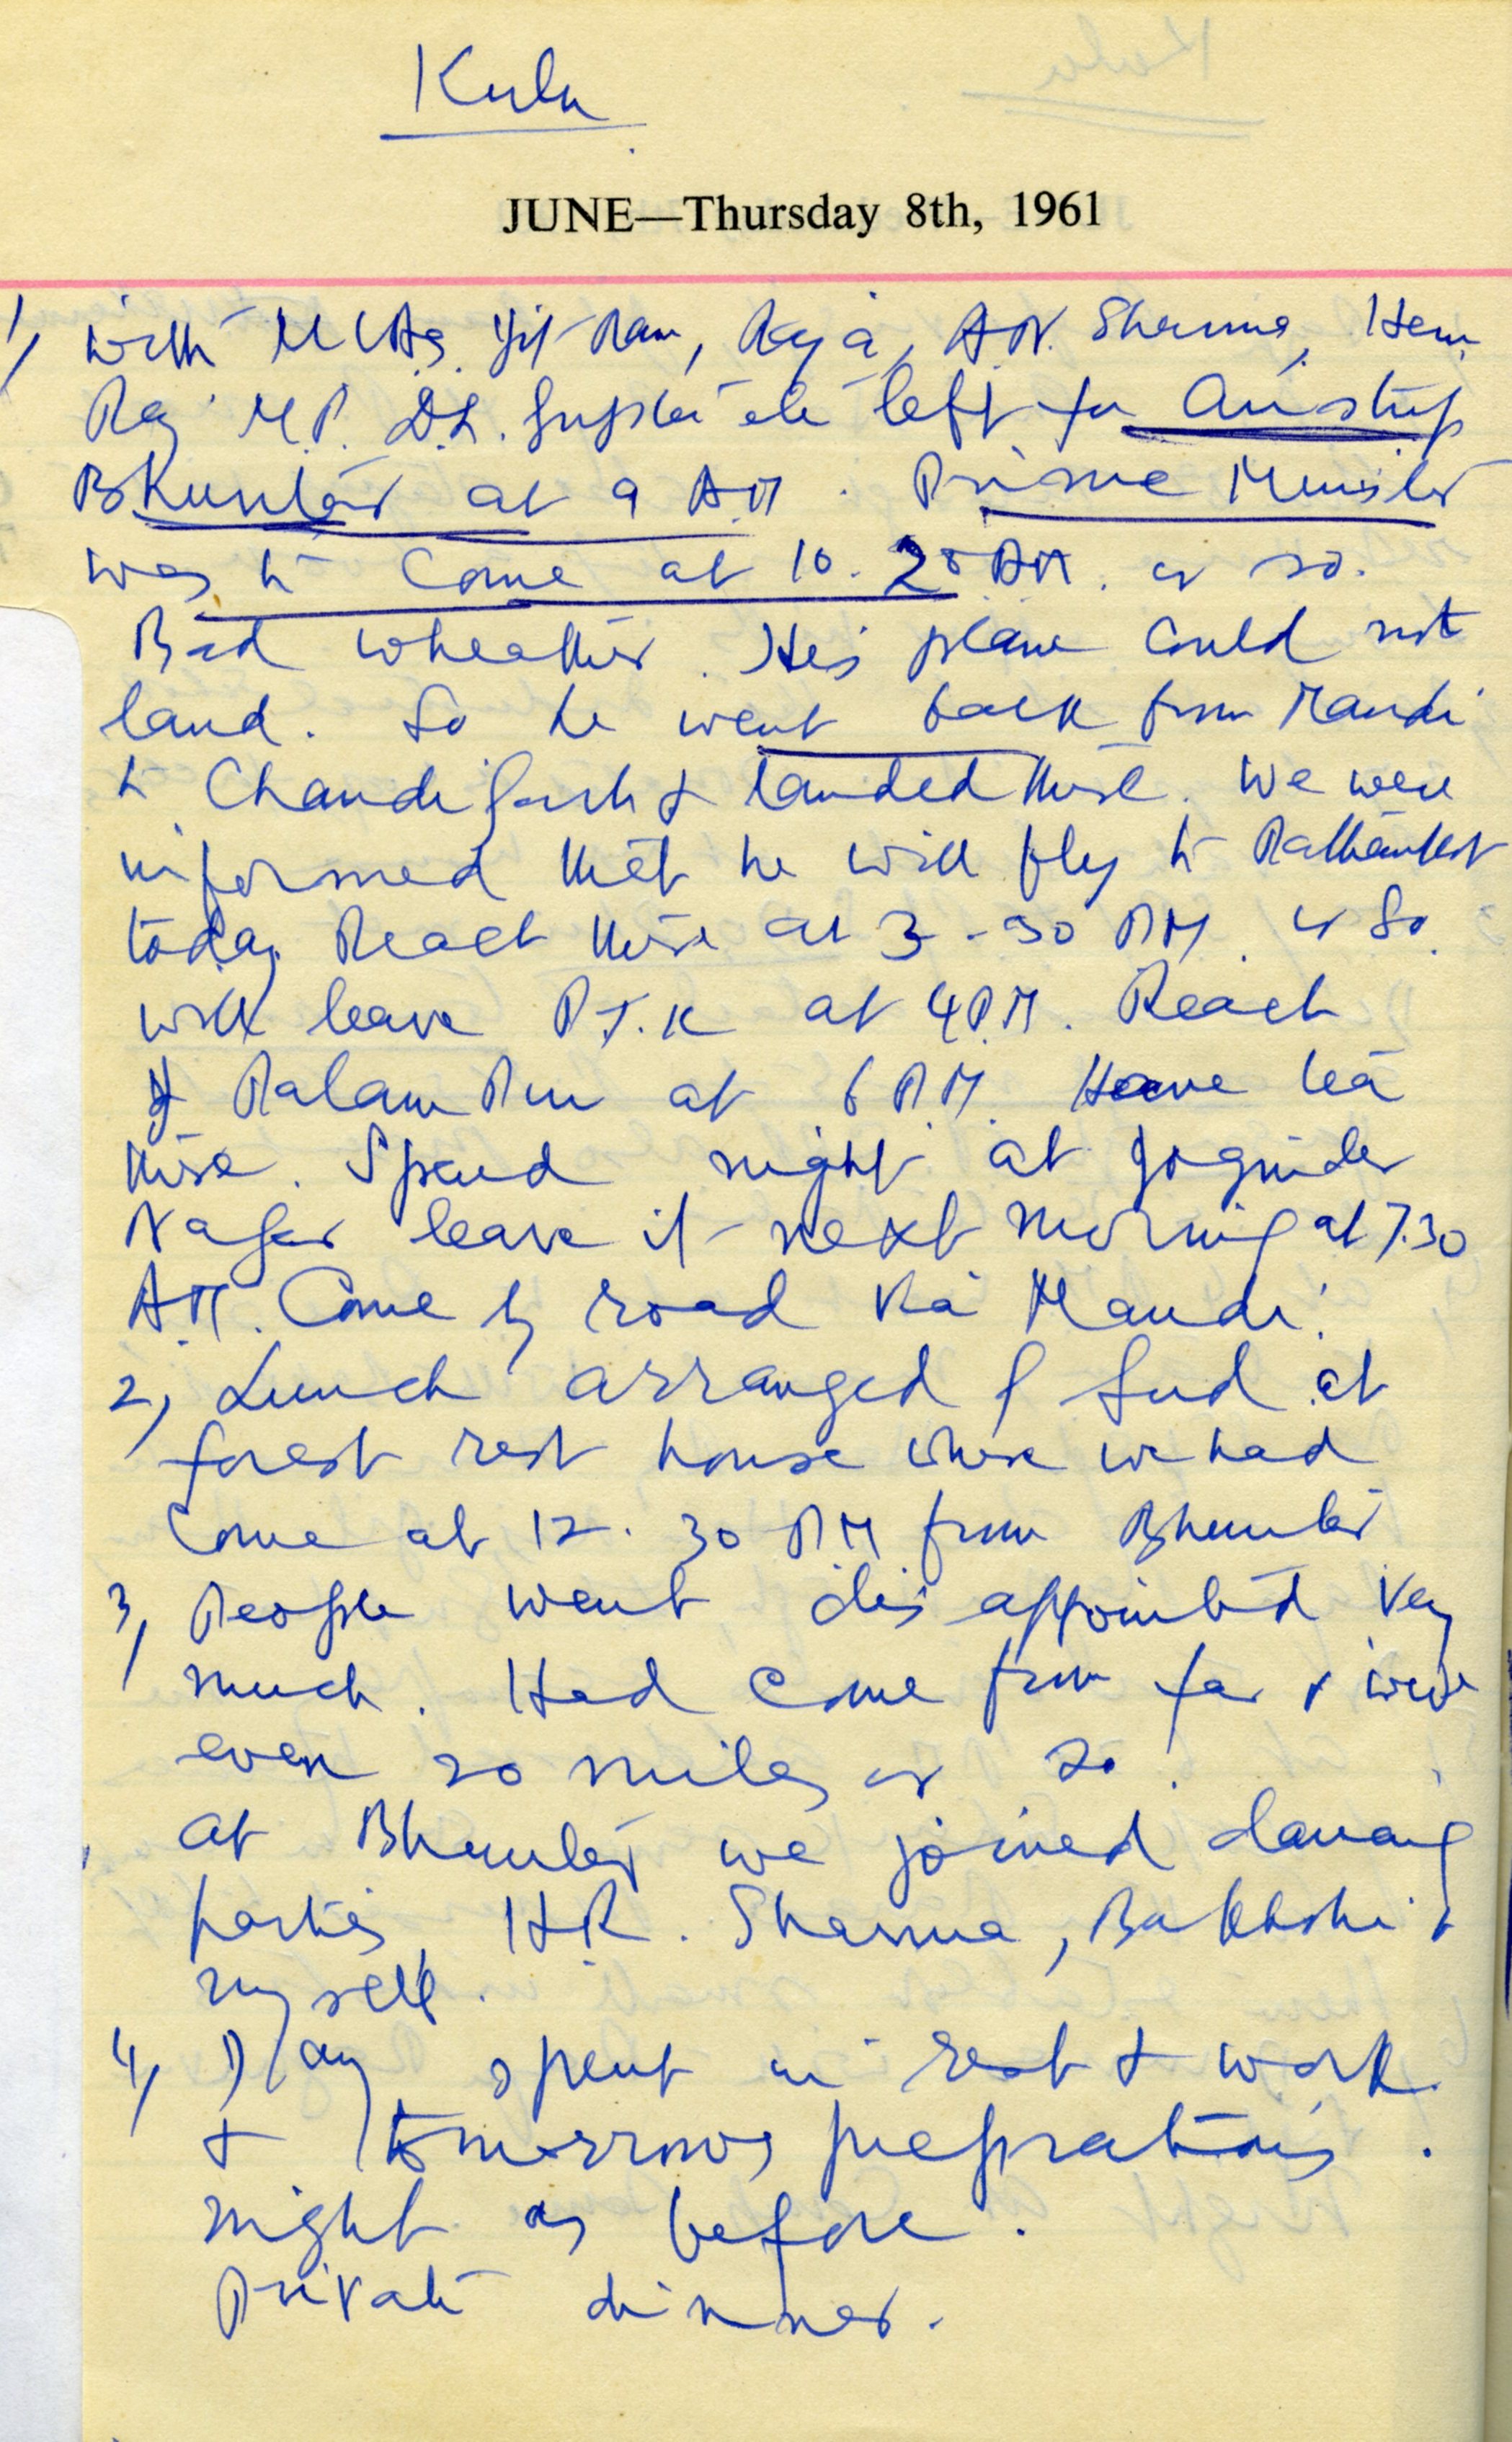 Kulu
JUNE—Thursday 8th, 1961
1, with MLAs Jit Ram, Raja, A.N. Sharma, Hem
Raj M.P. D.L. Gupta etc left for Airstrip
Bhuntar at 9 AM. Prime Minister
was to come at 10.20 AM. or so.
Bad wheather. His plane could not
land. So he went back from Mandi
to Chandigarh & landed there. We were
informed that he will fly to Pathankot
today. Reach there at 3-30 PM. or so.
will leave P.T.K at 4 P.M. Reach
Palam Pur at 6 P.M. Have tea
there. Spend night at Joginder
Nagar leave it next morning at 7.30
A.M. Come by road via Mandi.
2, Lunch arranged by Sud at
forest rest house where we had
come at 12.30 PM from Bhunter
3, People went disappointed very
much. Had come from far & wide
even 20 miles or so.
at Bhunter we joined dancing
parties H.R. Sharma, Bakhshi &
myself.
4, Day spent in rest & work
& tomorrows preprations.
night as before.
Private dinner.